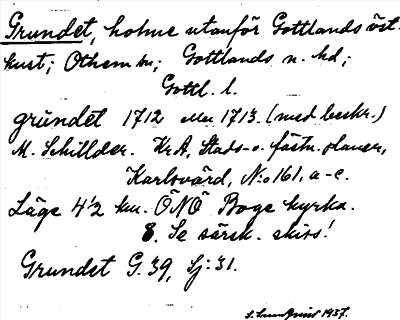 Grundet, holme utanför Gottlands öst-
kust; Othem sn; Gottlands n. hd;
Gottl. l.
grůndet 1712 1713. (med beskr.)
M. Schillder. KrA, Stads- o. fästn. planer,
Karlsvärd, N:o 161, a-e.
Läge 4½ km. ÖNÖ Boge kyrka.
8. Se särsk. skiss!
Grundet G. 39, Sj: 31.
1937.